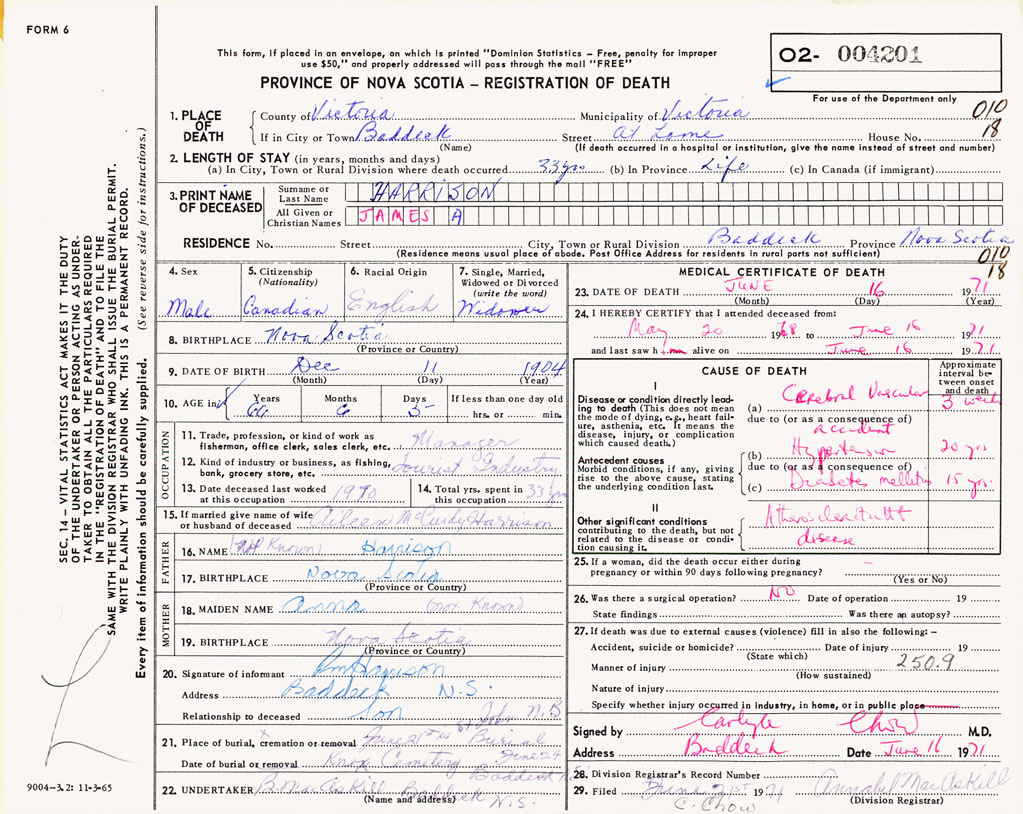 FORM 6
This form, if placed in an envelope, on which is printed "Dominion Statistics – Free, penalty for improper
use $50," and properly addressed will pass through the mail "FREE"
PROVINCE OF NOVA SCOTIA – REGISTRATION OF DEATH
O2- 004201
For use of the Department only
010
18
1. PLACE OF DEATH
County of Victoria Municipality of Victoria
If in City or Town Baddeck Street At Home House No.
(Name) (If death occurred in a hospital or institution, give the name instead of street and number)
2. LENGTH OF STAY (in years, months and days)
(a) In City, Town or Rural Division where death occurred 33 yrs (b) In Province Life (c) In Canada (if immigrant)
3. PRINT NAME OF DECEASED
Surname or Last Name HARRISON
All Given or Christian Names JAMES A
RESIDENCE No. Street City, Town or Rural Division Baddeck Province Nova Scotia
(Residence means usual place of abode. Post Office Address for residents in rural parts not sufficient)
010
18
4. Sex Male
5. Citizenship (Nationality) Canadian
6. Racial Origin English
7. Single, Married, Widowed or Divorced (write the word) Widower
8. BIRTHPLACE Nova Scotia
(Province or Country)
9. DATE OF BIRTH Dec 11 1904
(Month) (Day) (Year)
10. AGE in Years 66 Months 6 Days 5 If less than one day old
hrs. or min.
OCCUPATION
11. Trade, profession, or kind of work as
fisherman, office clerk, sales clerk, etc. Manager
12. Kind of industry or business, as fishing,
bank, grocery store, etc. Tourist Industry
13. Date deceased last worked
at this occupation 1970
14. Total yrs. spent in
this occupation 33 yrs
15. If married give name of wife
or husband of deceased Aileen McCurdy Harrison
FATHER
16. NAME (Not Known) Harrison
17. BIRTHPLACE Nova Scotia
(Province or Country)
MOTHER
18. MAIDEN NAME Anna (not Known)
19. BIRTHPLACE Nova Scotia
(Province or Country)
20. Signature of informant Harrison
Address Baddeck N.S.
Relationship to deceased Son
21. Place of burial, cremation or removal June 21st to St John N.B
Date of burial or removal Knox Cemetery Burial June 24
Baddeck N.S.
22. UNDERTAKER B. MacAskill Baddeck N.S.
(Name and address)
MEDICAL CERTIFICATE OF DEATH
23. DATE OF DEATH JUNE 16 1971
(Month) (Day) (Year)
24. I HEREBY CERTIFY that I attended deceased from:
May 20 1968 to June 16 1971
and last saw him alive on June 16 1971
CAUSE OF DEATH
Approximate interval between onset and death
I
Disease or condition directly leading to death (This does not mean
the mode of dying, e.g., heart failure, asthenia, etc. It means the
disease, injury, or complication
which caused death.)
(a) Cerebral Vascular 3 weeks
due to (or as a consequence of)
accident
Antecedent causes
Morbid conditions, if any, giving
rise to the above cause, stating
the underlying condition last.
(b) Hypertension 20 yrs
due to (or as a consequence of)
(c) Diabetes mellitus 15 yrs.
II
Other significant conditions
contributing to the death, but not
related to the disease or condition causing it.
disease
25. If a woman, did the death occur either during
pregnancy or within 90 days following pregnancy? –
(Yes or No)
26. Was there a surgical operation? NO Date of operation 19
State findings Was there an autopsy?
27. If death was due to external causes (violence) fill in also the following: –
Accident, suicide or homicide? Date of injury 19
(State which)
250.9
Manner of injury
(How sustained)
Nature of injury
Specify whether injury occurred in industry, in home, or in public place
Signed by Carlyle Chow M.D.
Address Baddeck Date June 16 1971
28. Division Registrar's Record Number
29. Filed June 21st 1971 Annabel MacAskill
C. Chow (Division Registrar)
SEC. 14 – VITAL STATISTICS ACT MAKES IT THE DUTY
OF THE UNDERTAKER OR PERSON ACTING AS UNDER-
TAKER TO OBTAIN ALL THE PARTICULARS REQUIRED
IN THE "REGISTRATION OF DEATH" AND TO FILE THE
SAME WITH THE DIVISION REGISTRAR WHO SHALL ISSUE THE BURIAL PERMIT.
WRITE PLAINLY WITH UNFADING INK. THIS IS A PERMANENT RECORD.
Every item of information should be carefully supplied. (See reverse side for instructions.)
9004-3.2: 11-3-65